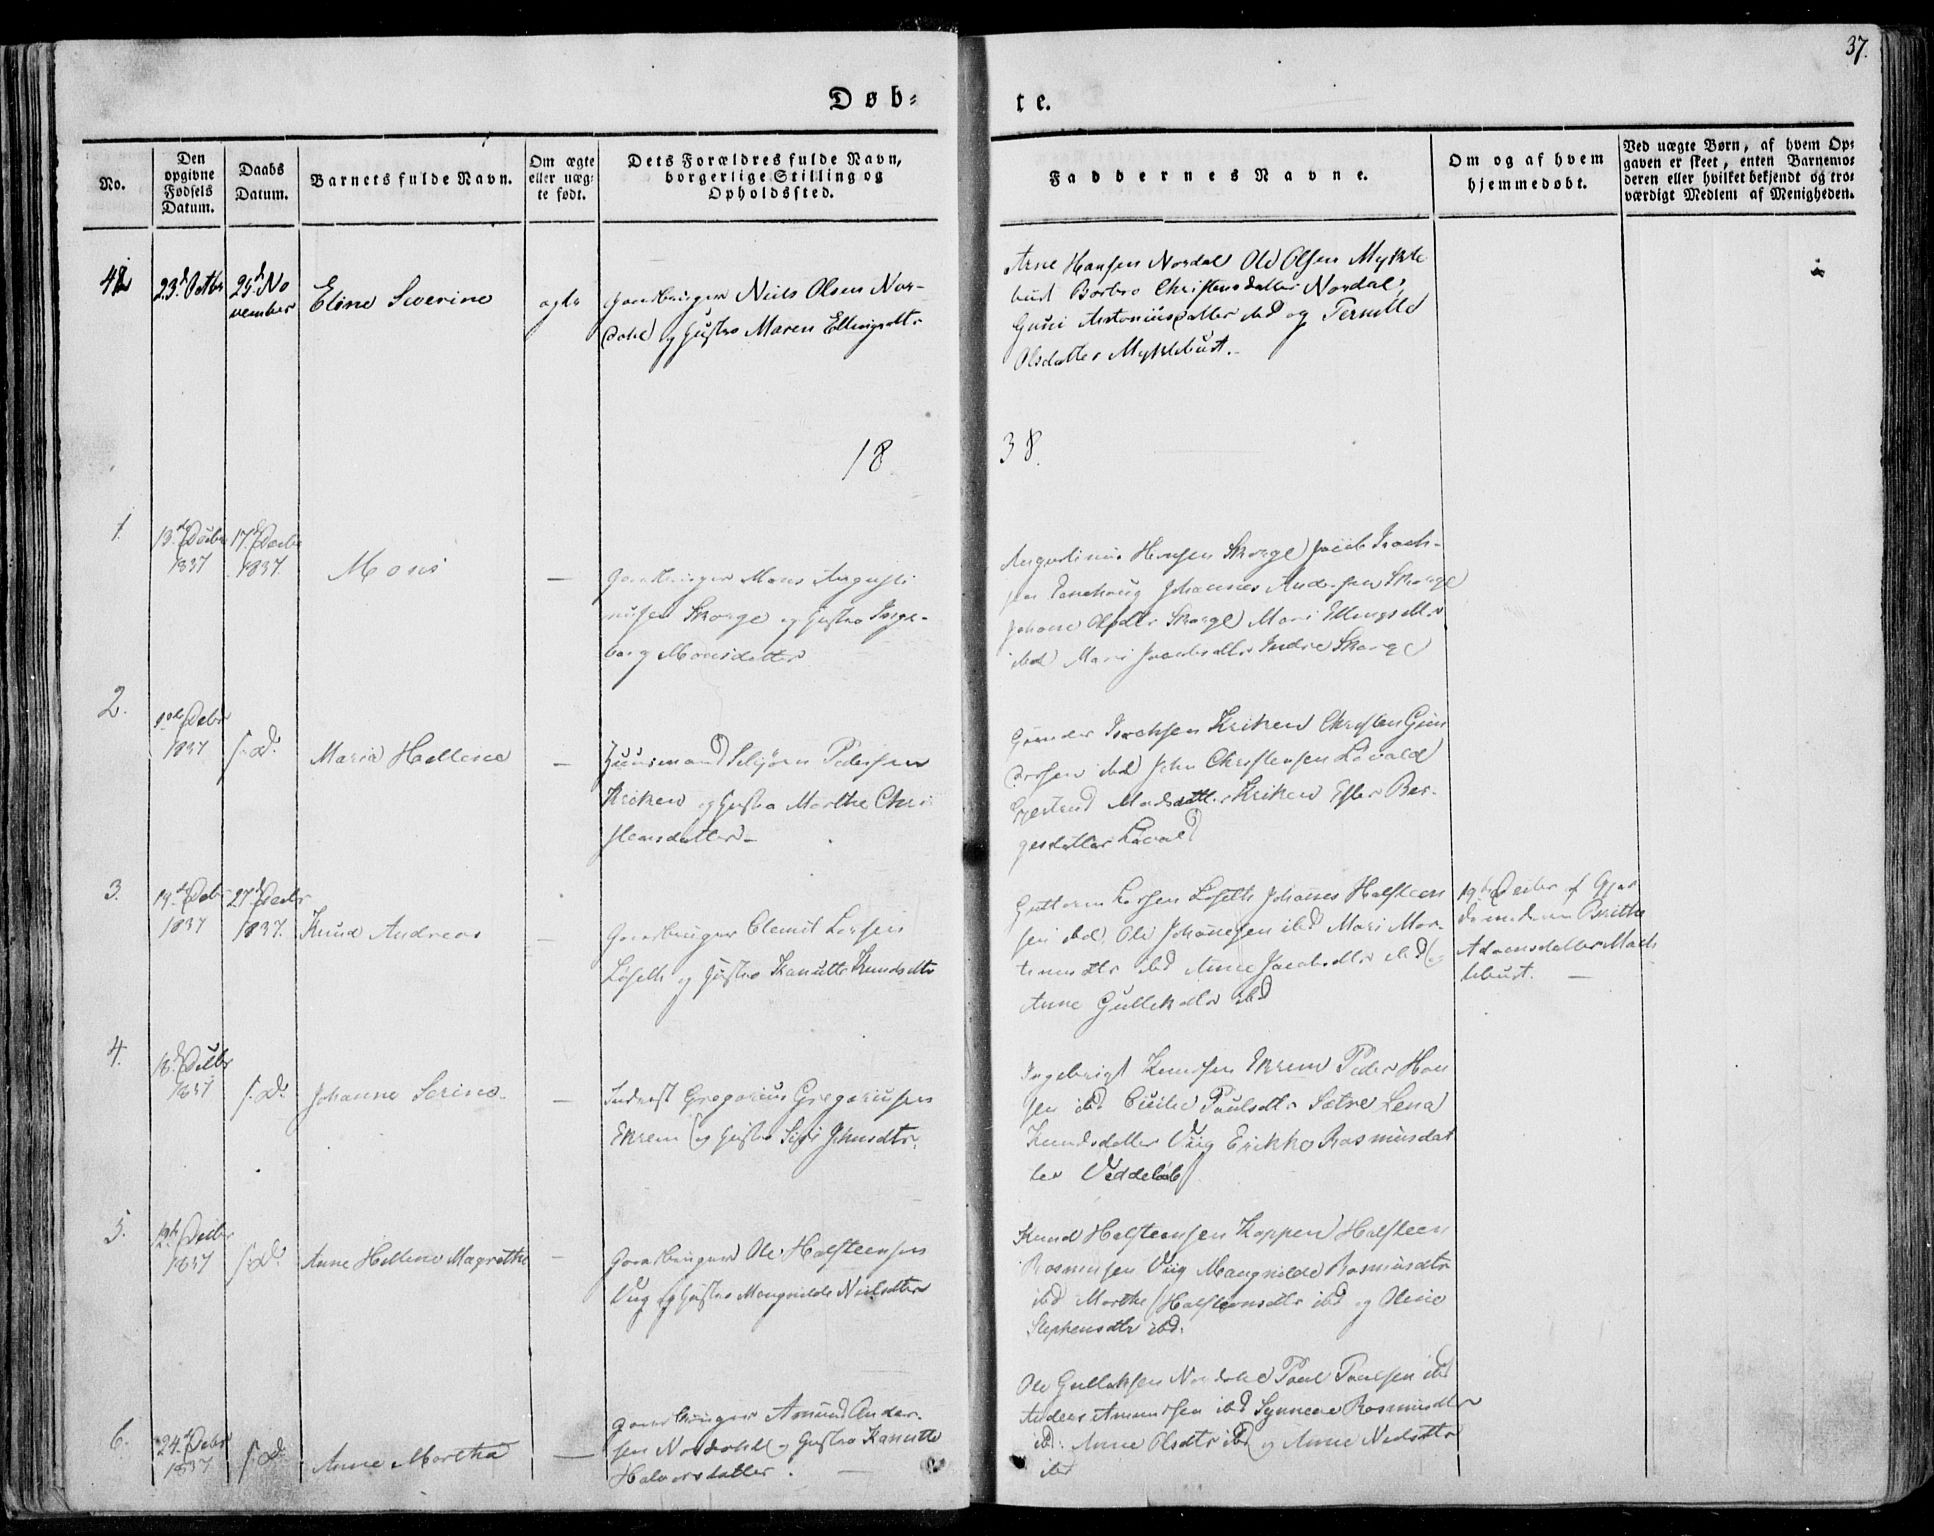 37.
Døb-
te.
No.
Den
opgivne
Fødsels
Datum.
Daabs
Datum.
Barnets fulde Navn.
Om ægte
eller uæg-
te født.
Dets Forældres fulde Navn,
borgerlige Stilling og
Opholdssted.
Faddernes Navne.
Om og af hvem
hjemmedøbt.
Ved uægte Børn, af hvem Op-
gaven er skeet, enten Barnemo-
deren eller hvilket bekjendt og tro-
værdigt Medlem af Menigheden.
23d Octbr
25d No
vember
Eline Severine
ægte
Gaardbruger Niels Olsen Nor-
dahl og Hustro Maren Ellingsdtr
Arne Hansen Nordal Ole Olsen Mykle
bust Barbro Christensdatter Nordal,
Guni Antoniusdatter ibd og Pernille
Olsdatter Myklebust.
18
38.
1.
13d Decbr
1837
17d Decbr
1837.
Mons
—
Gaardbruger Mons Augusti
nusen Skorge og Hustro Inge-
borg Monsdatter
Augustinus Hansen Skorge Jacob Isach-
sen Johannes Andersen Skorge
Johanne Olsdtr Skorge Mari Ellingsdtr
ibd Mari Jacobsdtr Indre Skorge
2.
Decbr
1837
s. D.
Maria Hellene
—
Huusmand Pedersen
Kriken og Hustro Marthe Chri
stensdatter —
Gunder Isachsen Kriken Christen Gun
dersen ibd John Christensen Løvold
Gjertrud Madsdatter Kriken Ester Bar-
gesdatter Løvold
3.
19d Decbr
1837
27d Decbr
1837.
Knud Andreas
—
Gaardbruger Clemit Larsen
Løseth og Hustro Kanutte Knudsdtr
Guttorm Larsen Løseth Johannes Halsteen
sen ibd. Ole Johannesen ibd Mari Mor-
tensdtr ibd Anne Jacobsdtr ibd
Anne Gulleksdtr ibd
19d Decbr af Gjor
demoderen Berithe
Adamsdatter Mach
lebust. —
4.
18d Decbr
1837
s. D.
Johanne Serine
—
Inderst Gregorius Gregoriusen
Ekrem og Hustro Siri Johnsdtr.
Ingebrigt Knudsen Ekrem Peder Han
sen ibd Cicilie Paulsdtr Sætre Lena
Knudsdatter Viig Erikke Rasmusdat
ter Veddeland
5.
Decbr
1837
s. D.
Anne Hellene Magrethe
—
Gaardbruger Ole Halsteensen
Viig og Hustro Mangnilde Nielsdtr
Knud Halsteensen Koppen Halsteen
Rasmusen Viig Mangnilde Rasmusdtr
ibd Marthe Halsteensdtr ibd og Oline
Stephensdtr ibd.
6.
24d Decbr
1837
s. D.
Anne Martha
—
Gaardbruger Amund Ander-
sen Nordahl og Hustro Kanutte
Halvorsdatter. —
Ole Gulleksen Nordahl Paul Paulsen ibd
Anders Amundsen ibd Synneve Rasmusdtr
ibd. Anne Olsdtr ibd og Anne Nielsdtr
ibd